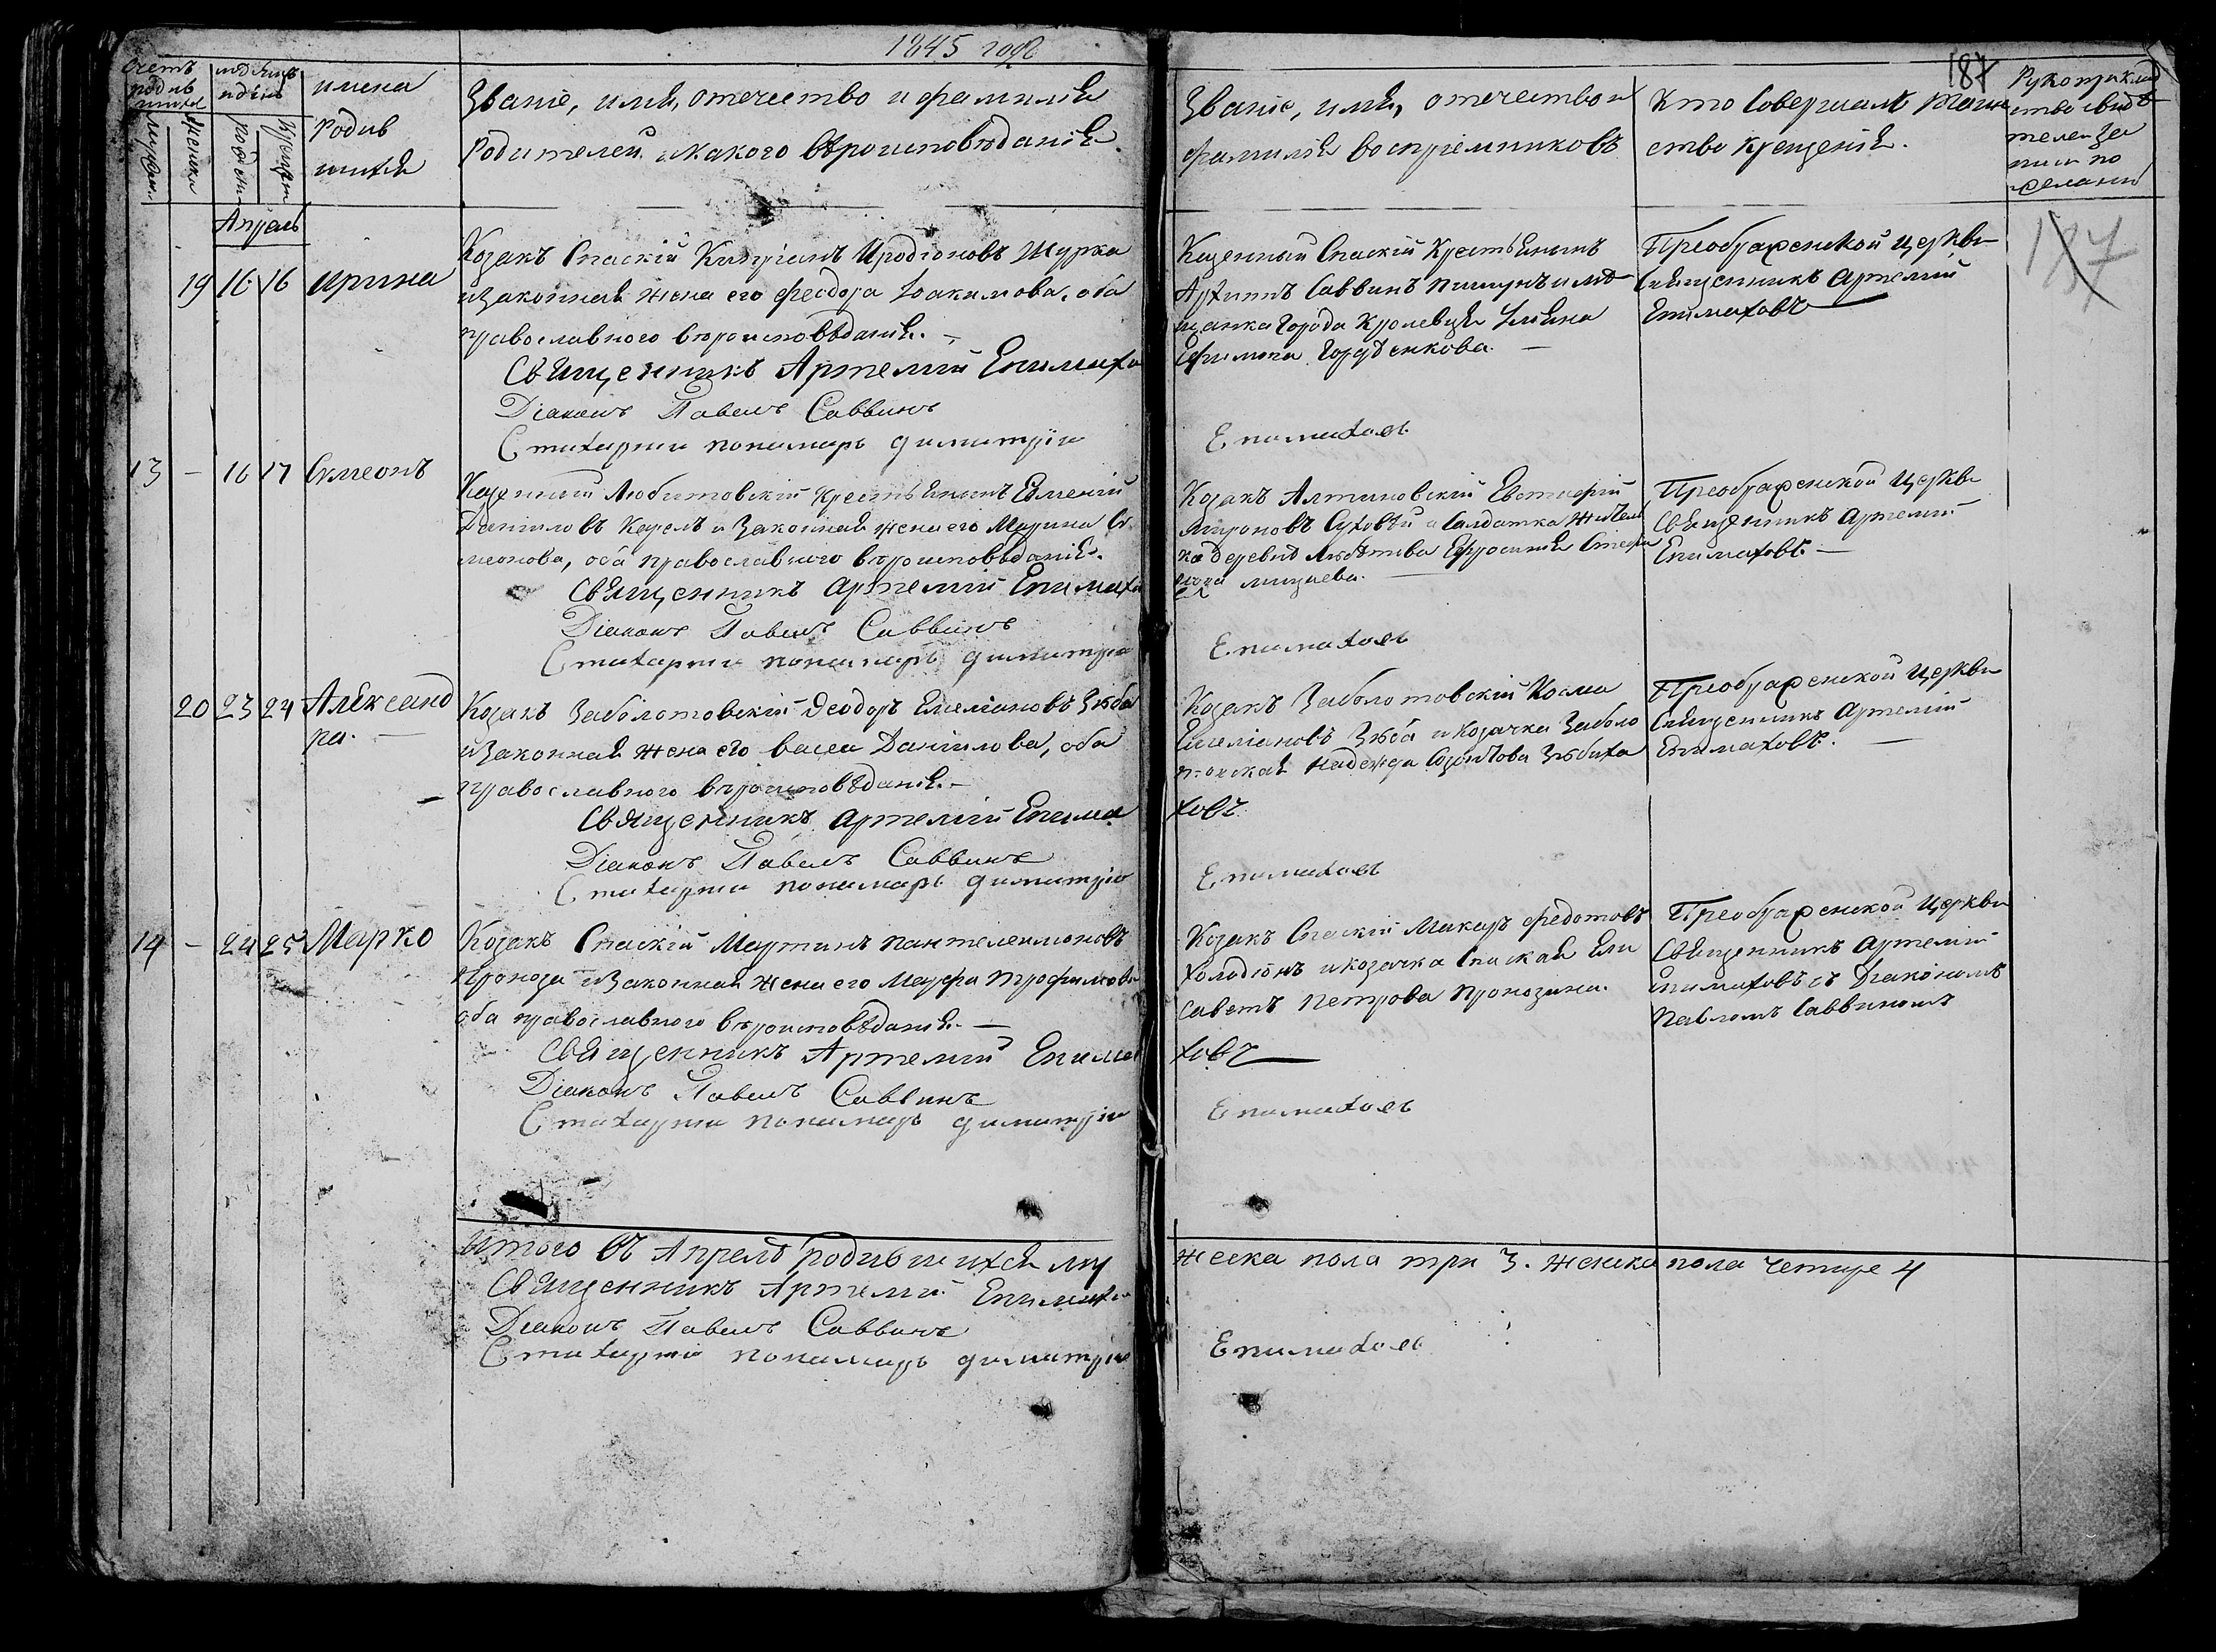 1845 года
187
Счетъ родившихся
мужеска
женска
рожденія
крещенія
имена родившихся
Званіе, имя, отечество и фамилія
родителей и какого вѣроисповѣданія
Званіе, имя, отечество и
фамилія воспріемниковъ
Кто совершалъ таин
ство крещенія.
Рукоприклад
ство свидѣ
телей за
писи по
желанію
187
Апрель
19 16 16 Ирина
Козакъ Спаскій Кипріанъ Иродіоновъ Шурка
и законная жена его Феодора Іоакимова, оба
православного вѣроисповѣданія.
Священникъ Артемій Епимахо
Діаконъ Павелъ Саввинъ
Стихарни пономарь Димитрію
Казенный Спаскій Крестьянинъ
Архиппъ Саввинъ и мѣ
щанка города Кролевца Ульяна
Ефимова Гордѣенкова.
Епимаховъ
Преображенской церкви
Священникъ Артемій
Епимаховъ
13 – 16 17 Симеонъ
Казенный Любитовскій крестьянинъ Евменій
Даніиловъ и законная жена его Марина Си
меонова, оба православного вѣроисповѣданія.
Священникъ Артемій Епимахо
Діаконъ Павелъ Саввинъ
Стихарни пономарь Димитрію
Козакъ Алтиновскій Евстафій
Мироновъ Суховѣй и Салдатка жител
ка деревни Любѣтова Ефросинія Стефа
нова
Епимаховъ
Преображенской церкви
Священникъ Артемій
Епимаховъ.
20 23 24 Александ
ра.
Козакъ Заболотовскій Феодоръ Емеліановъ Зюба
и законная жена его Васса Даніилова, оба
православного вѣроисповѣданія.
Священникъ Артемій Епима
Діаконъ Павелъ Саввинъ
Стихарни пономарь Димитрію
Козакъ Заболотовскій Косма
Емеліановъ Зюба и козачка Заболо
товская Надежда Зюбиха
ховъ
Епимаховъ
Преображенской церкви
Священникъ Артемій
Епимаховъ.
14 – 24 25 Марко
Козакъ Спаскій Мартинъ Пантелеимоновъ
Проноза и законная жена его Марфа Трофимова
оба православного вѣроисповѣданія.
Священникъ Артемій Епима
Діаконъ Павелъ Саввинъ
Стихарни пономарь Димитрію
Козакъ Спаскій Макаръ Федотовъ
Холодіонъ и козачка Спаская Ели
саветъ Петрова Пронозина.
ховъ
Епимаховъ
Преображенской церкви
Священникъ Артемій
Епимаховъ съ Діакономъ
Павломъ Саввиномъ
Итого въ Апрелѣ родившихся му
жеска пола три 3. женска пола четире 4
Священникъ Артемій Епимахо
Діаконъ Павелъ Саввинъ
Стихарни пономарь Димитрію
Епимаховъ